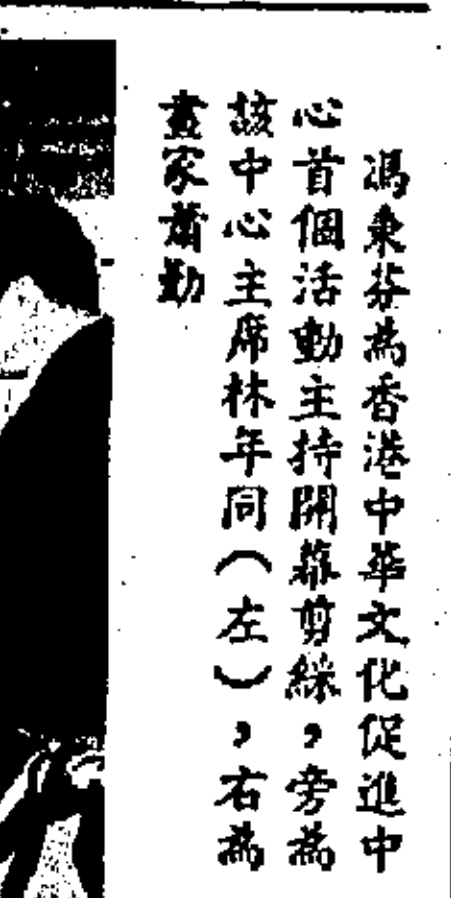 馮秉芬為香港中華文化促進中
心首個活動主持開幕剪綵，旁為
該中心主席林年同（左），右為
畫家蕭勤